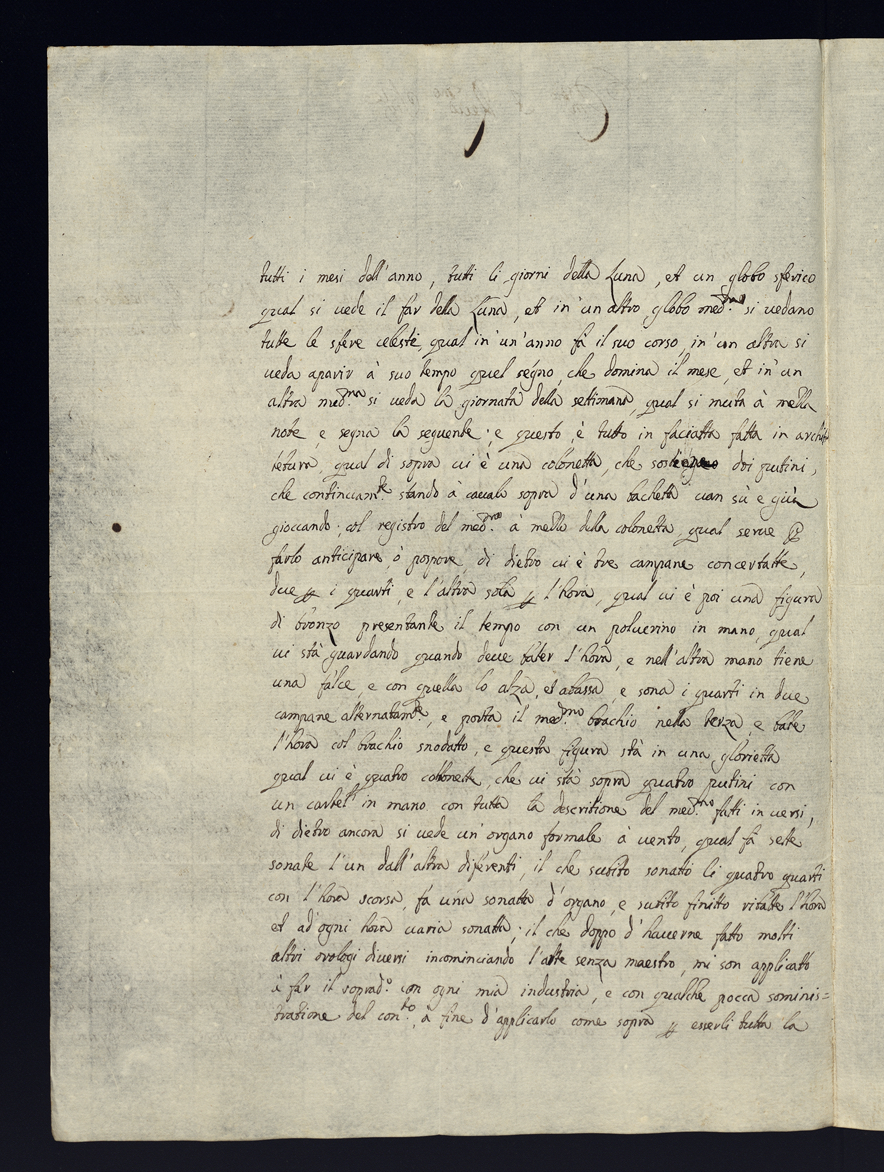 tutti i mesi dell'anno, tutti li giorni della Luna, et un globo sferico
qual si uede il far della Luna, et in'un altro globo med.mo si uedano
tutte le sfere celesti, qual in'un'anno fà il suo corso, in'un altra si
ueda aparir à suo tempo quel segno, che domina il mese, et in'un
altra med.ma si ueda la giornata della settimana, qual si muta à mella
note, e segna la seguente; e questo, è tutto in faciatta fatta in archit-
tetura, qual di sopra ui è una colonetta, che sostiene doi putini,
che continuam.te stando à caualo sopra d'una bachetta uan sù e giù
gioccando; col registro del med.mo à mella della colonetta, qual serue p
farlo anticipare, ò posporre, di dietro ui è tre campane concertatte,
due p i quarti, e l'altra sola p l'hora, qual ui è poi una figura
di bronzo presentante il tempo con un poluerino in mano, qual
ui stà guardando quando deue bater l'hora, e nell'altra mano tiene
una falce, e con quella lo alza, et abassa, e sona i quarti in due
campane alternatam.te, e porta il med.mo brachio nella terza, e bate
l'hora col brachio snodatto, e questa figura stà in una glorietta
qual ui è quatro colonette, che ui stà sopra quatro putini con
un cartel in mano con tutta la descritione del med.mo fatti in uersi,
di dietro ancora si uede un'organo formale à uento, qual fà sette
sonate l'un dall'altra diferenti, il che subito sonatò li quatro quarti
con l'hora scorsa, fa una sonatta d'organo, e subito finitto ribatte l'hora
et ad'ogni hora uaria sonatta; il che doppo d'hauerne fatto molti
altri orologi diuersi incominciando l'arte senza maestro, mi son applicato
à far il soprad.o con ogni mia industria, e con qualche pocca sominis=
tratione del con.to, à fine d'applicarlo come sopra p esserli tutta la